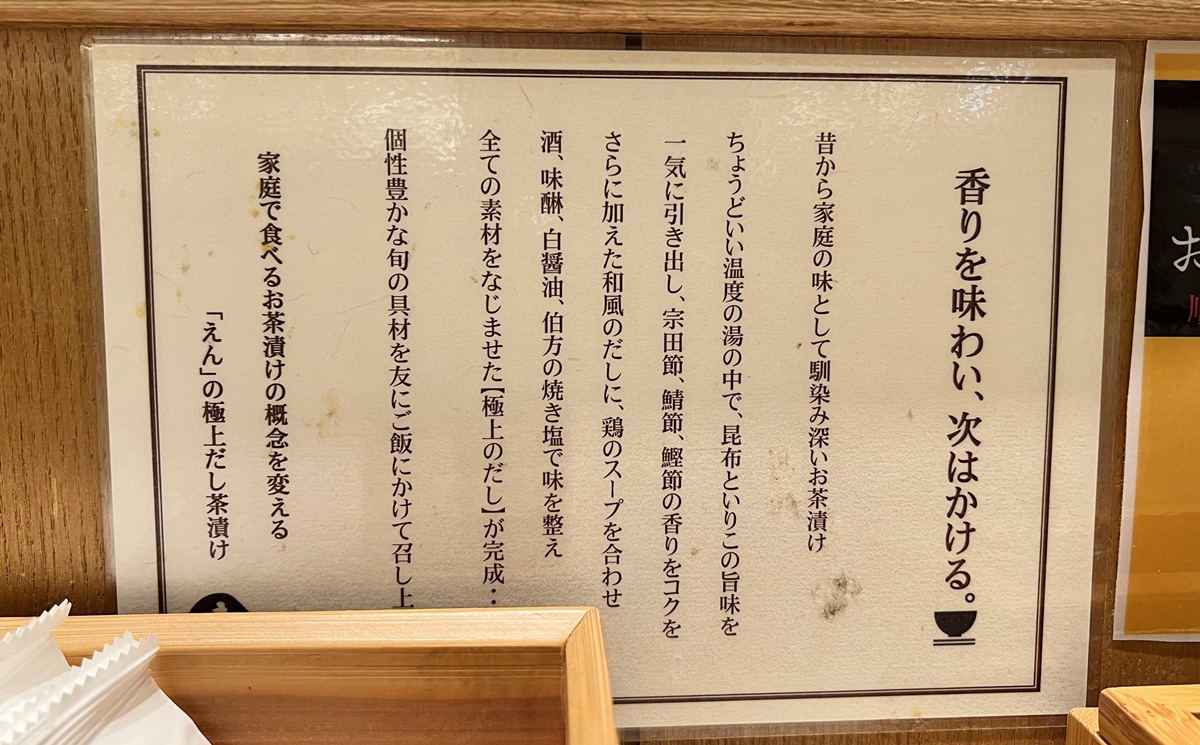 香りを味わい、次はかける。
昔から家庭の味として馴染み深いお茶漬け
ちょうどいい温度の湯の中で、昆布といりこの旨味を
一気に引き出し、宗田節、鯖節、鰹節の香りをコクを
さらに加えた和風のだしに、鶏のスープを合わせ
酒、味醂、白醤油、伯方の焼き塩で味を整え
全ての素材をなじませた【極上のだし】が完成・・
個性豊かな旬の具材を友にご飯にかけて召し上
家庭で食べるお茶漬けの概念を変える
「えん」の極上だし茶漬け
お